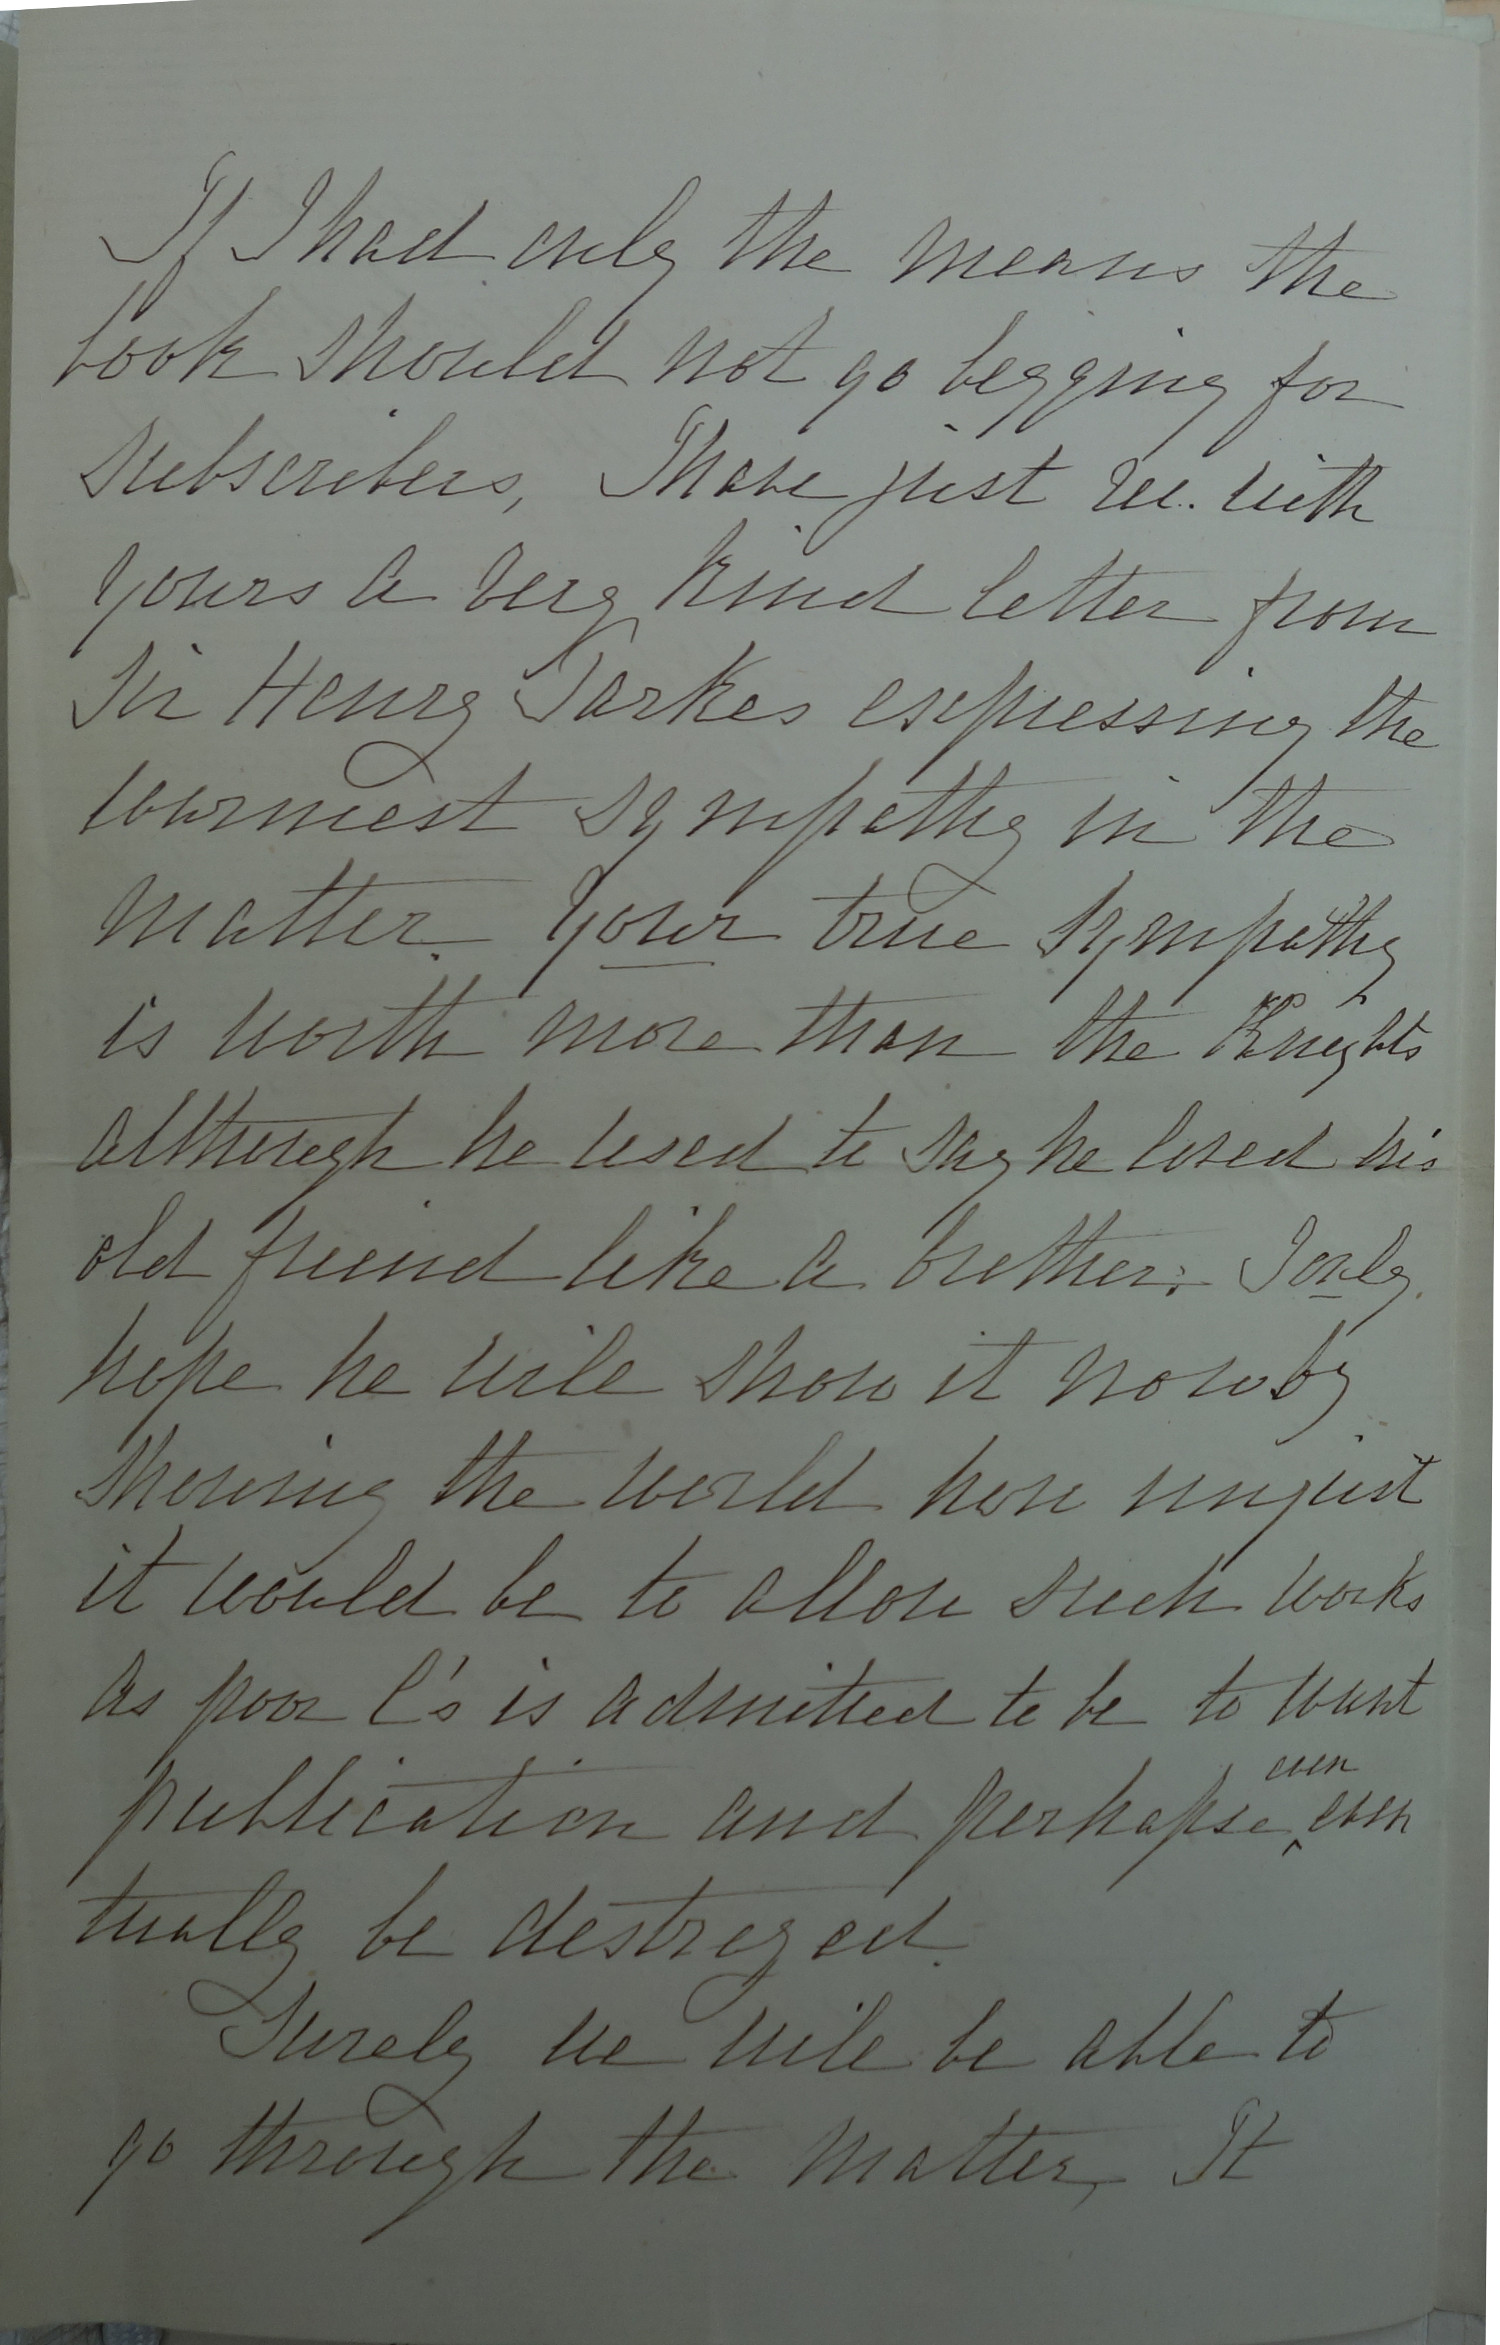 If I had only the means the
book should not go begging for
subscribers, I have just rec. with
yours a very kind letter from
Sir Henry Parkes expressing the
warmest sympathy in the
matter. Your true sympathy
is worth more than the Knights
although he used to say he loved his
old friend like a brother. I only
hope he will show it now by
showing the world how unjust
it would be to allow such works
as poor C's is admitted to be to want
publication and perhapse even
even
tually be destroyed.
Surely we will be able to
go through the matter, It